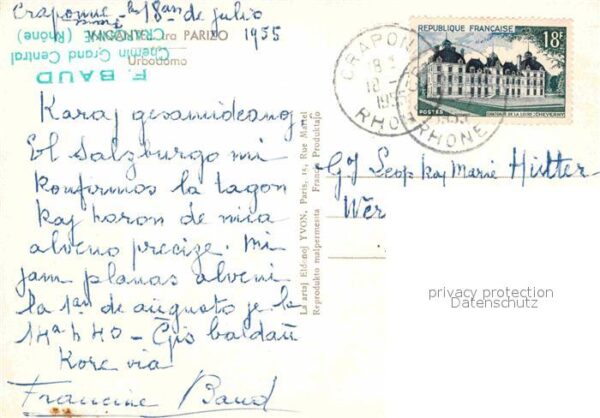 Craponne - la 18an de julio
1955
VAGANTE tra PARIZO
Urbodomo
F. BAUD
Chemin Grand Central
CRAPONNE (Rhône)
Karaj gesamideanoj
El Salzburgo mi
konfirmos la tagon
kaj horon de mia
alveno precize. Mi
jam planas alveni
la 1an de aŭgusto je la
14a h 40 - Ĝis baldaŭ
Kore via
Francine Baud
La artaj Eldonoj YVON, Paris, 15, Rue Martel
Reprodukto malpermesita Franca Produktajo
REPUBLIQUE FRANÇAISE
18F
POSTES
CHATEAUX DE LA LOIRE : CHEVERNY
CRAPONNE
18
RHONE
RHONE
Gj Leop kaj Marie Hütter
Wër
privacy protection
Datenschutz